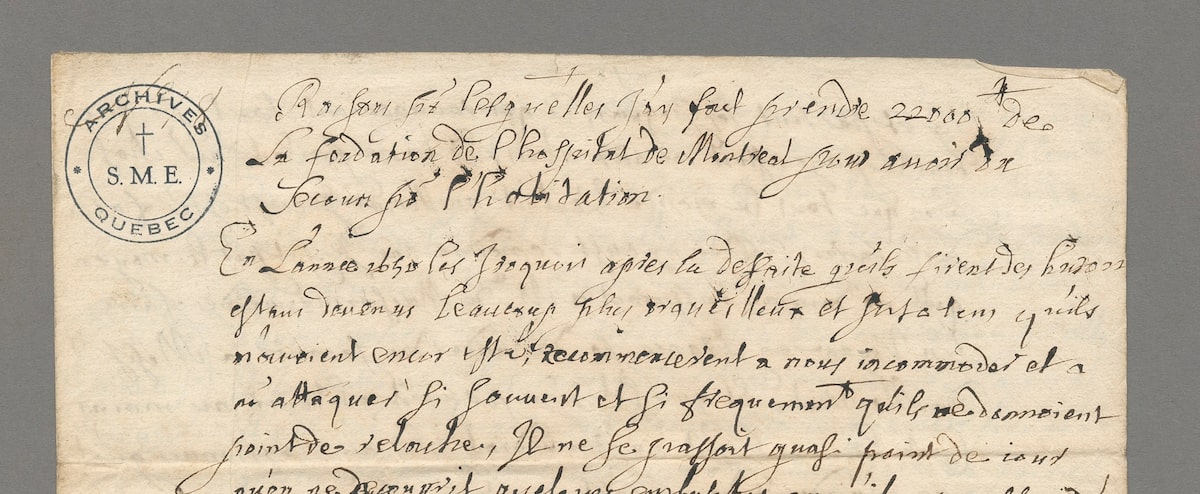 ARCHIVES
S. M. E.
QUEBEC
Raisons pr lesquelles J'ay fait prendre 22000 ₶ de
La fondation de l'hospital de Montreal pour avoir du
Secours pr l'habitation.
En L'annee 1650 les Iroquois apres la deffaite qu'ils firent des hurons
estant devenus beaucoup plus orgueilleux et Insolens qu'ils
n'avoient encor esté, recommencerent a nous incommoder et a
ns attaquer si souvent et si frequement qu'ils ne donnoient
point de relache, Il ne se passoit quasi point de iour
qu'on ne decouvrit quelque